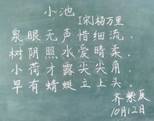 小池
[宋]杨万里
泉眼无声惜细流
树阴照水爱晴柔
小荷才露尖尖角
早有蜻蜓立上头
10月12日